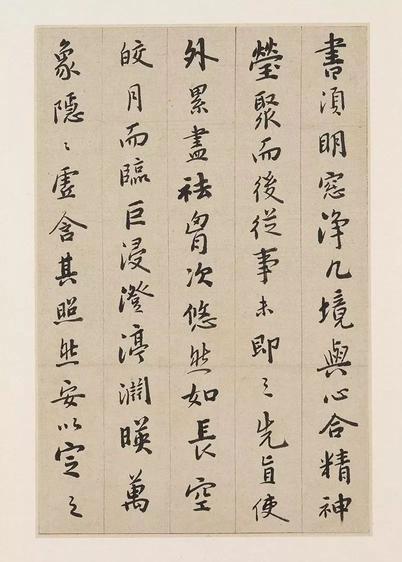 書須明窓浄几境與心合精神
瑩聚而後従事未即之先宜使
外累盡祛胷次悠然如長空
皎月而臨巨浸澄渟澗暎萬
象隱〻虚含其照然安以定之